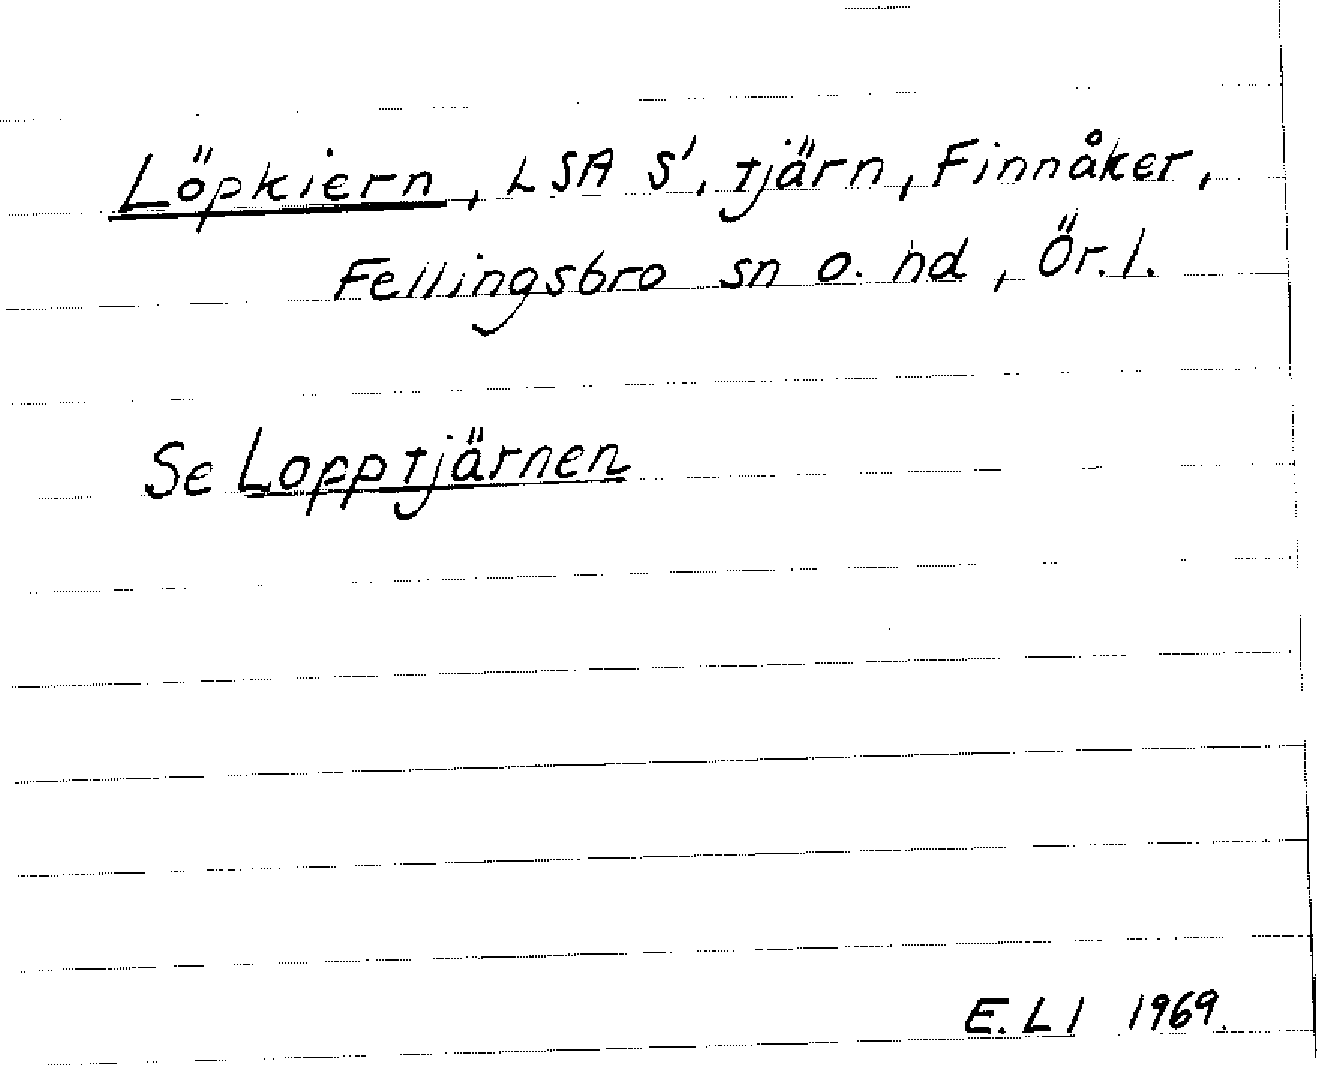 Löpkiern, LSA S', tjärn, Finnåker,
Fellingsbro sn o. hd, Ör. l.
Se Lopptjärnen
E. L I 1969.